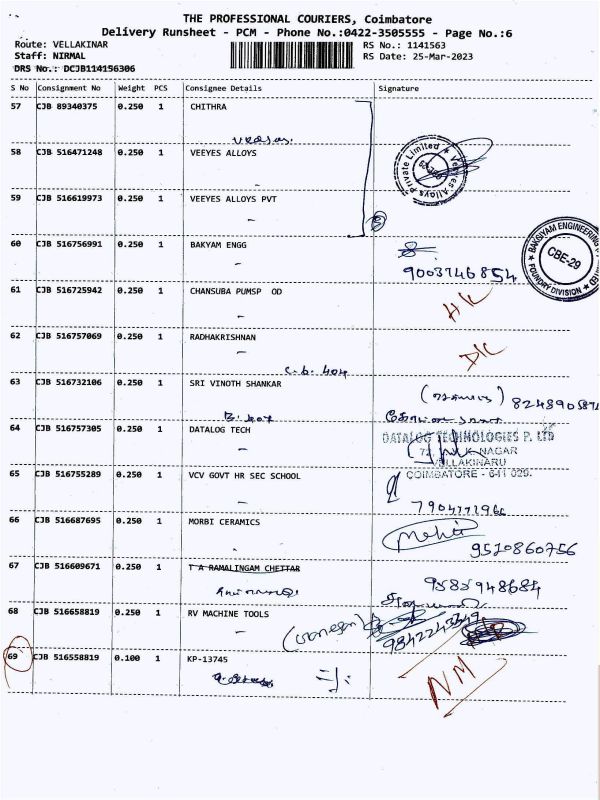 THE PROFESSIONAL COURIERS, Coimbatore
Delivery Runsheet - PCM - Phone No.:0422-3505555 - Page No.:6
Route: VELLAKINAR RS No.: 1141563
Staff: NIRMAL RS Date: 25-Mar-2023
DRS No.: DCJB114156306
S No Consignment No Weight PCS Consignee Details Signature
57 CJB 89340375 0.250 1 CHITHRA
58 CJB 516471248 0.250 1 VEEYES ALLOYS
Veeyes Alloys Private Limited
59 CJB 516619973 0.250 1 VEEYES ALLOYS PVT
60 CJB 516756991 0.250 1 BAKYAM ENGG
9003746854
BAKSIYAM ENGINEERING
CBE-29
FOUNDRY DIVISION
61 CJB 516725942 0.250 1 CHANSUBA PUMSP OD
62 CJB 516757069 0.250 1 RADHAKRISHNAN
DK
C.b. 404
63 CJB 516732106 0.250 1 SRI VINOTH SHANKAR
64 CJB 516757305 0.250 1 DATALOG TECH
DATALOG TECHNOLOGIES P. LTD
NAGAR
VELLAKINARU
COIMBATORE - 641 029.
65 CJB 516755289 0.250 1 VCV GOVT HR SEC SCHOOL
66 CJB 516687695 0.250 1 MORBI CERAMICS
9510860756
67 CJB 516609671 0.250 1 T A RAMALINGAM CHETTAR
9585948684
68 CJB 516658819 0.250 1 RV MACHINE TOOLS
69 CJB 516558819 0.100 1 KP-13745
NM